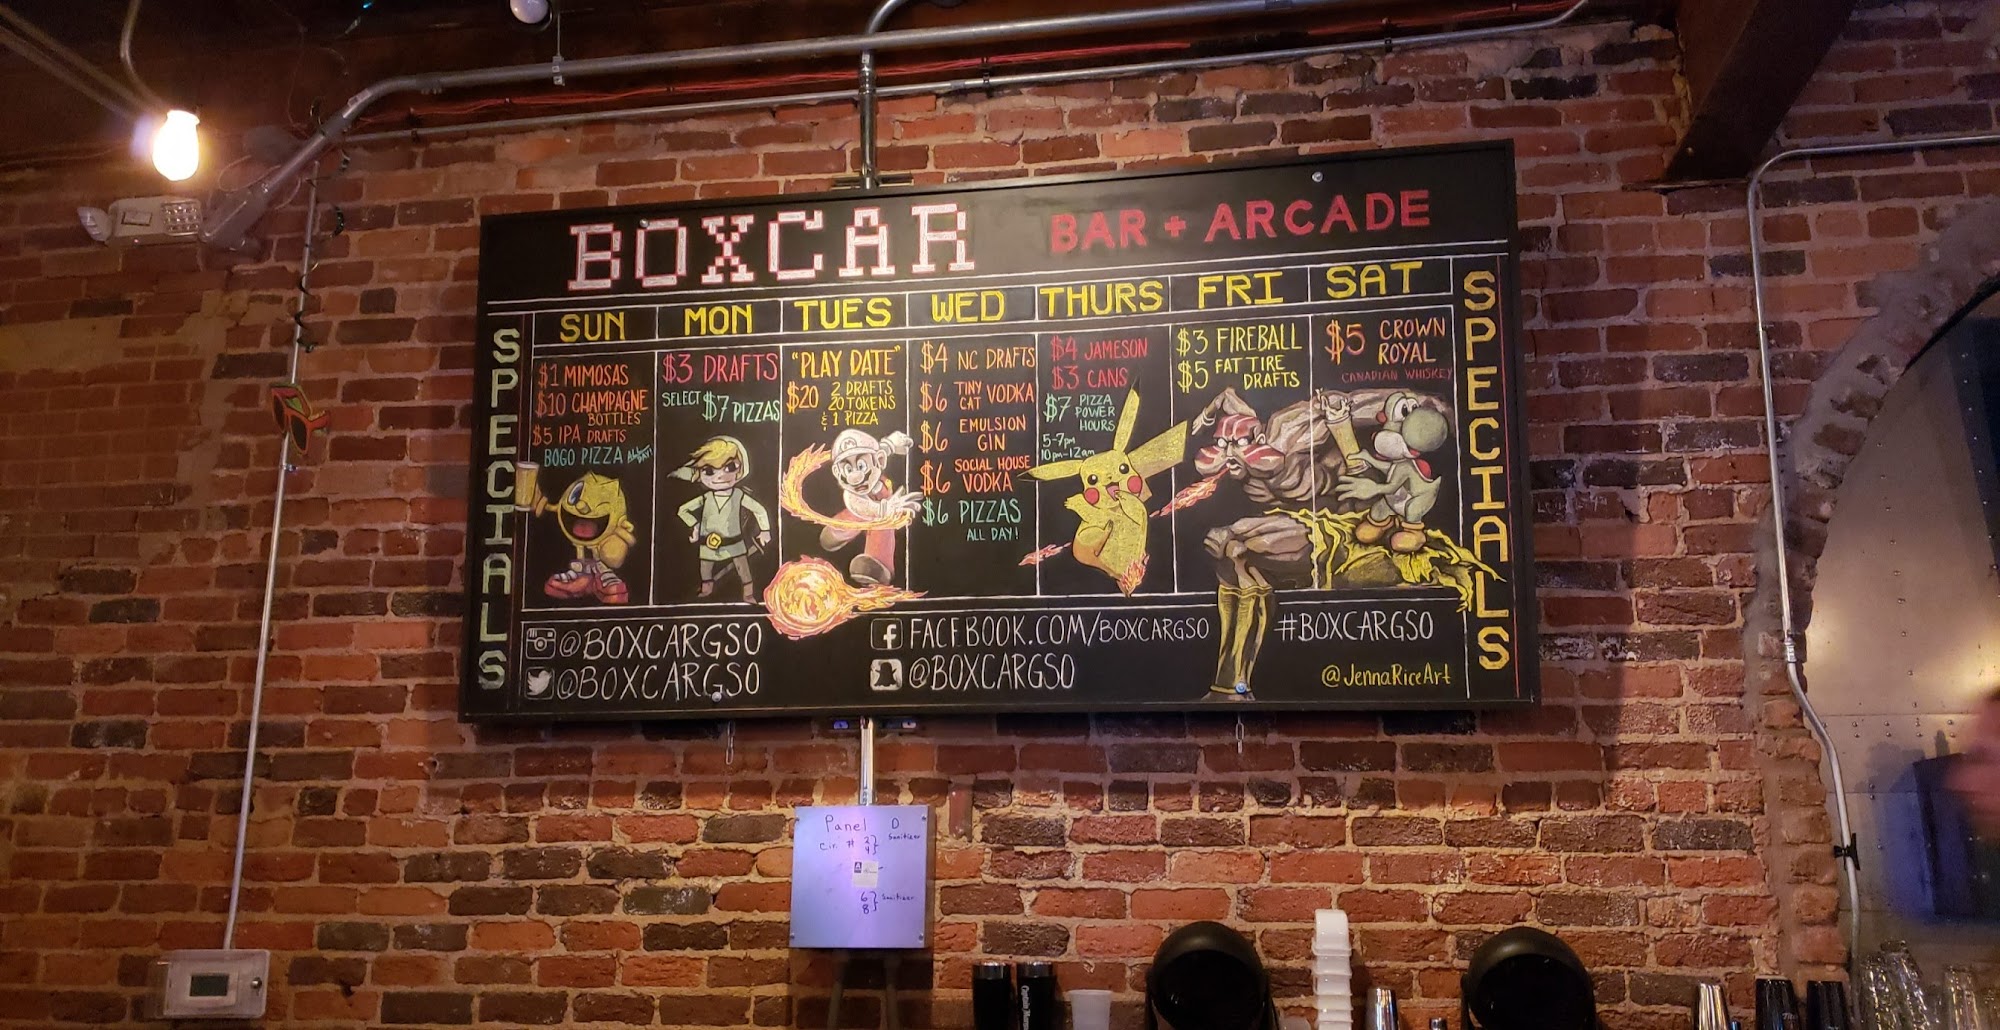 BOXCAR BAR + ARCADE
SPECIALS
SUN
$1 MIMOSAS
$10 CHAMPAGNE
BOTTLES
$5 IPA DRAFTS
BOGO PIZZA ALL DAY!
MON
$3 DRAFTS
SELECT $7 PIZZAS
TUES
"PLAY DATE"
$20 2 DRAFTS
20 TOKENS
& 1 PIZZA
WED
$4 NC DRAFTS
$6 TINY CAT VODKA
$6 EMULSION GIN
$6 SOCIAL HOUSE VODKA
$6 PIZZAS
ALL DAY!
THURS
$4 JAMESON
$3 CANS
$7 PIZZA
POWER
HOURS
5-7pm
10pm-12am
FRI
$3 FIREBALL
$5 FAT TIRE
DRAFTS
SAT
$5 CROWN
ROYAL
CANADIAN WHISKEY
SPECIALS
@BOXCARGSO
@BOXCARGSO
FACEBOOK.COM/BOXCARGSO
@BOXCARGSO
#BOXCARGSO
@JennaRiceArt
Panel D
Cir. # 2 Sanitizer
4
6 Sanitizer
8